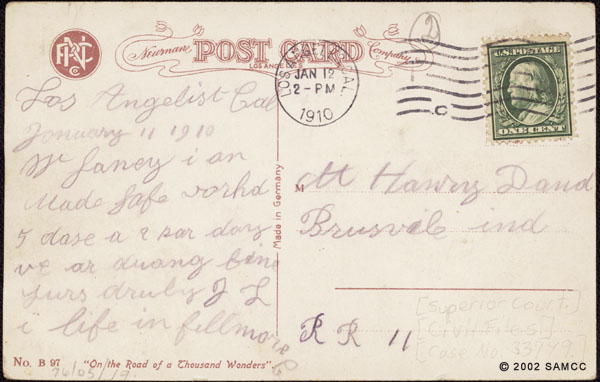 PNC Co
Newman POST CARD Company
LOS ANGELES
LOS ANGELES, CAL.
JAN 12
2 - PM
1910
U.S. POSTAGE
ONE CENT
2
Los Angelist Cal
January 11 1910
Mr Laney i an
Made Safe
5 dase a
ve ar
yurs druly J L
i life in fellmore
Made in Germany
M
Mt Hanry Dand
Brusvile ind
R R 11
[Superior Court.]
[Civil Files]
[Case No. 33749]
No. B 97 "On the Road of a Thousand Wonders"
76/05/19
© 2002 SAMCC